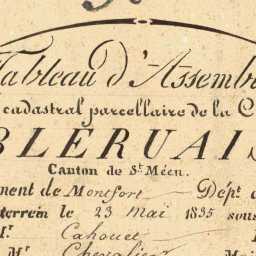 Tableau d'Assemb
cadastral parcellaire de la C
BLERUAIS
Canton de St. Méen.
ment de Montfort Dépt. d
terrein le 23 mai 1835 sous
Mr. Cahouet
Mr. Chevalier